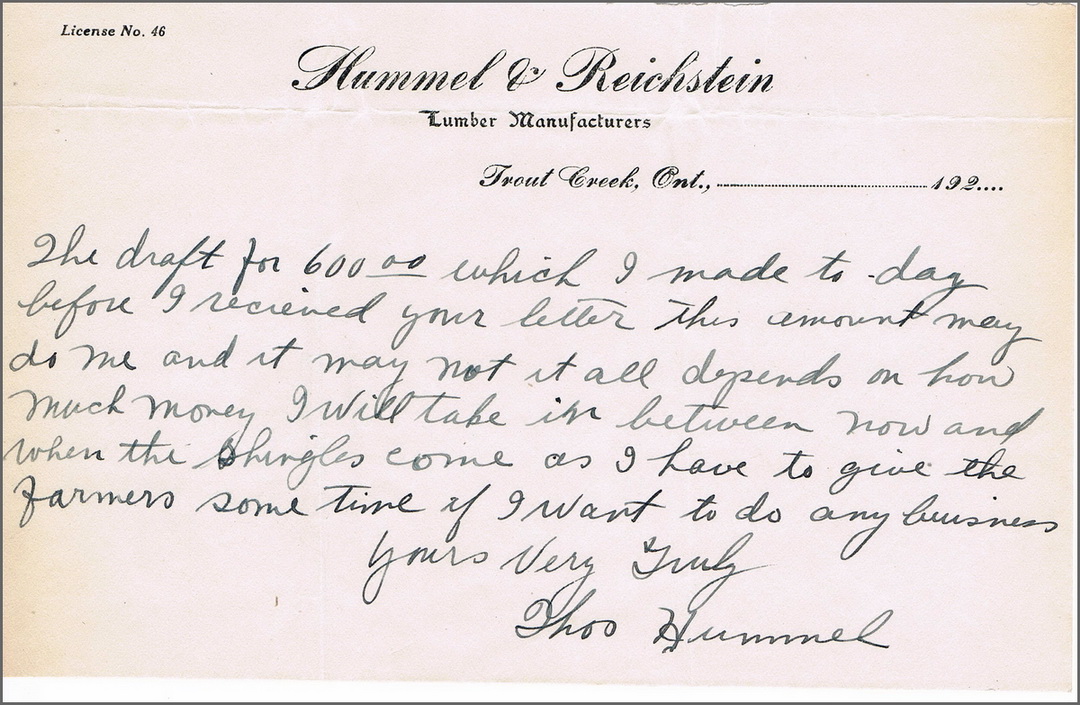 License No. 46
Hummel & Reichstein
Lumber Manufacturers
Trout Creek, Ont., ........................ 192....
The draft for 600 00 which I made to-day
before I recieved your letter this amount may
do me and it may not it all depends on how
much money I will take in between now and
when the shingles come as I have to give the
farmers some time if I want to do any buisness
Yours Very Truly
Thos Hummel